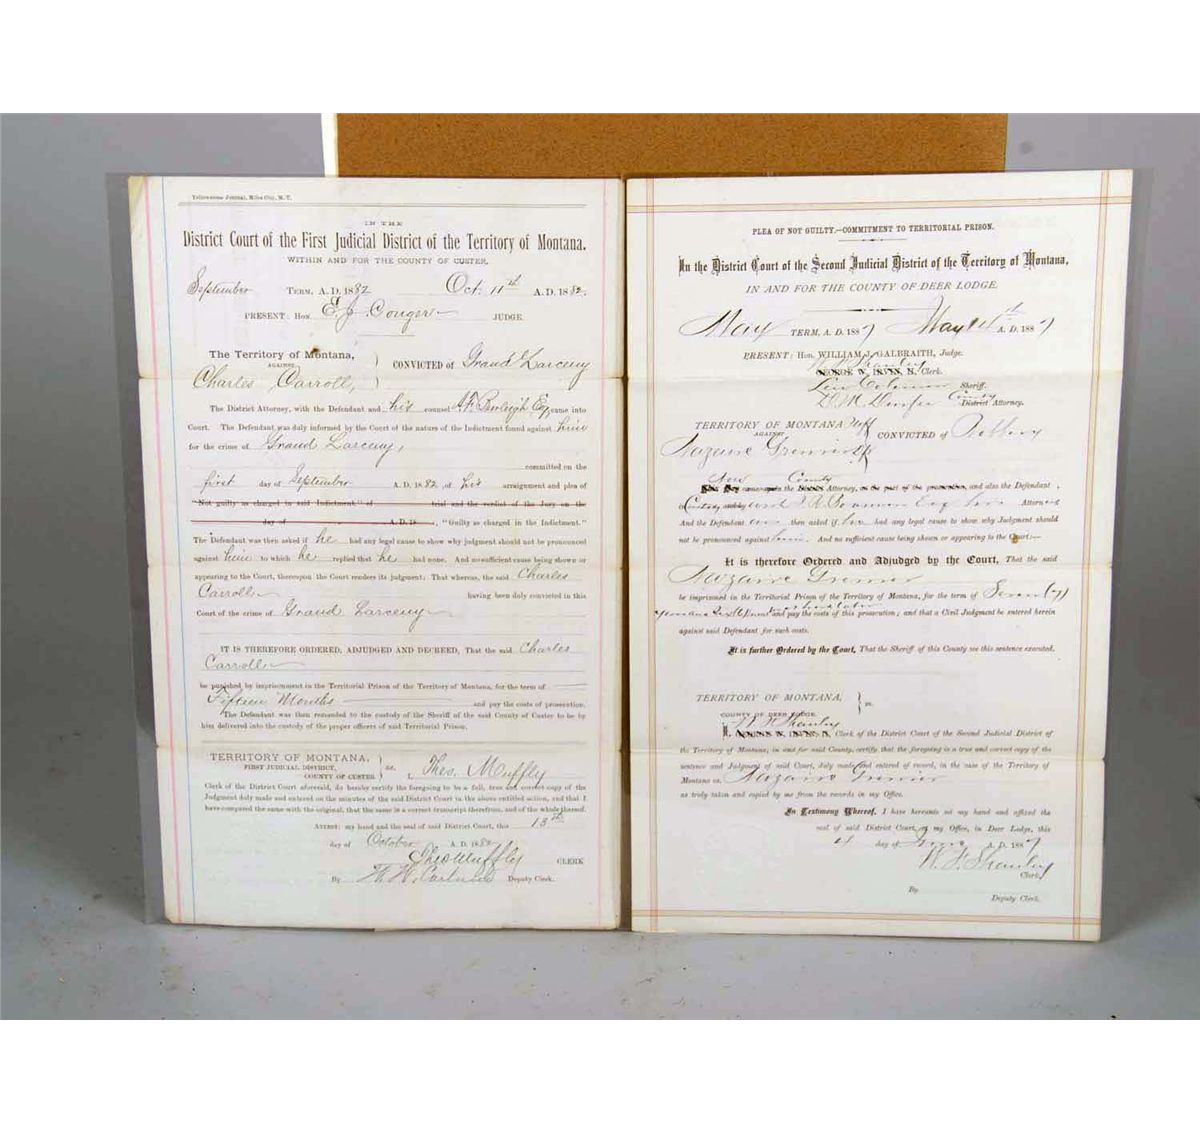 Yellowstone Journal, Miles City, M. T.
IN THE
District Court of the First Judicial District of the Territory of Montana.
WITHIN AND FOR THE COUNTY OF CUSTER.
September TERM, A. D. 1882 Oct. 11th A. D. 1882.
PRESENT: HON. E. J. Conger JUDGE.
The Territory of Montana,
AGAINST
Charles Carroll,
CONVICTED of Grand Larceny
The District Attorney, with the Defendant and his counsel A. F. Burleigh Esq, came into
Court. The Defendant was duly informed by the Court of the nature of the Indictment found against him
for the crime of Grand Larceny,
committed on the
first day of September A. D. 1882, of his arraignment and plea of
"Not guilty as charged in said Indictment" of trial and the verdict of the Jury on the
day of A. D. 18 , "Guilty as charged in the Indictment."
The Defendant was then asked if he had any legal cause to show why judgment should not be pronounced
against him to which he replied that he had none. And no sufficient cause being shown or
appearing to the Court, thereupon the Court renders its judgment: That whereas, the said Charles
Carroll having been duly convicted in this
Court of the crime of Grand Larceny
IT IS THEREFORE ORDERED, ADJUDGED AND DECREED, That the said Charles
Carroll
be punished by imprisonment in the Territorial Prison of the Territory of Montana, for the term of
Fifteen Months and pay the costs of prosecution.
The Defendant was then remanded to the custody of the Sheriff of the said County of Custer to be by
him delivered into the custody of the proper officers of said Territorial Prison.
TERRITORY OF MONTANA,
FIRST JUDICIAL DISTRICT,
COUNTY OF CUSTER
ss. I, Theo. Muffly
Clerk of the District Court aforesaid, do hereby certify the foregoing to be a full, true and correct copy of the
Judgment duly made and entered on the minutes of the said District Court in the above entitled action, and that I
have compared the same with the original, that the same is a correct transcript therefrom, and of the whole thereof.
ATTEST: my hand and the seal of said District Court, this 13th
day of October A. D. 1882
Theo Muffly CLERK
By Deputy Clerk.
PLEA OF NOT GUILTY.—COMMITMENT TO TERRITORIAL PRISON.
In the District Court of the Second Judicial District of the Territory of Montana,
IN AND FOR THE COUNTY OF DEER LODGE.
May TERM, A. D. 1887 May A. D. 1887
PRESENT: Hon. WILLIAM J. GALBRAITH, Judge.
GEORGE W. IRVIN, II. Clerk.
Lew Coleman Sheriff.
County
District Attorney.
TERRITORY OF MONTANA
AGAINST
Nazaire Grenier
CONVICTED of Robbery
Now County
the Attorney, on the part of the prosecution, and also the Defendant
Esq his Attorney
And the Defendant was then asked if he had any legal cause to show why Judgment should
not be pronounced against him. And no sufficient cause being shown or appearing to the Court:—
It is therefore Ordered and Adjudged by the Court, That the said
Nazaire Grenier
be imprisoned in the Territorial Prison of the Territory of Montana, for the term of
and pay the costs of this prosecution; and that a Civil Judgment be entered herein
against said Defendant for such costs.
It is further Ordered by the Court, That the Sheriff of this County see this sentence executed.
TERRITORY OF MONTANA,
COUNTY OF DEER LODGE.
ss.
I, GEORGE W. IRVIN, II, Clerk of the District Court of the Second Judicial District of
the Territory of Montana, in and for said County, certify that the foregoing is a true and correct copy of the
sentence and Judgment of said Court, duly made and entered of record, in the case of the Territory of
Montana vs. Nazaire Grenier
as truly taken and copied by me from the records in my Office.
In Testimony Whereof, I have hereunto set my hand and affixed the
seal of said District Court, at my Office, in Deer Lodge, this
4 day of June A. D. 1887
Clerk,
By
Deputy Clerk.